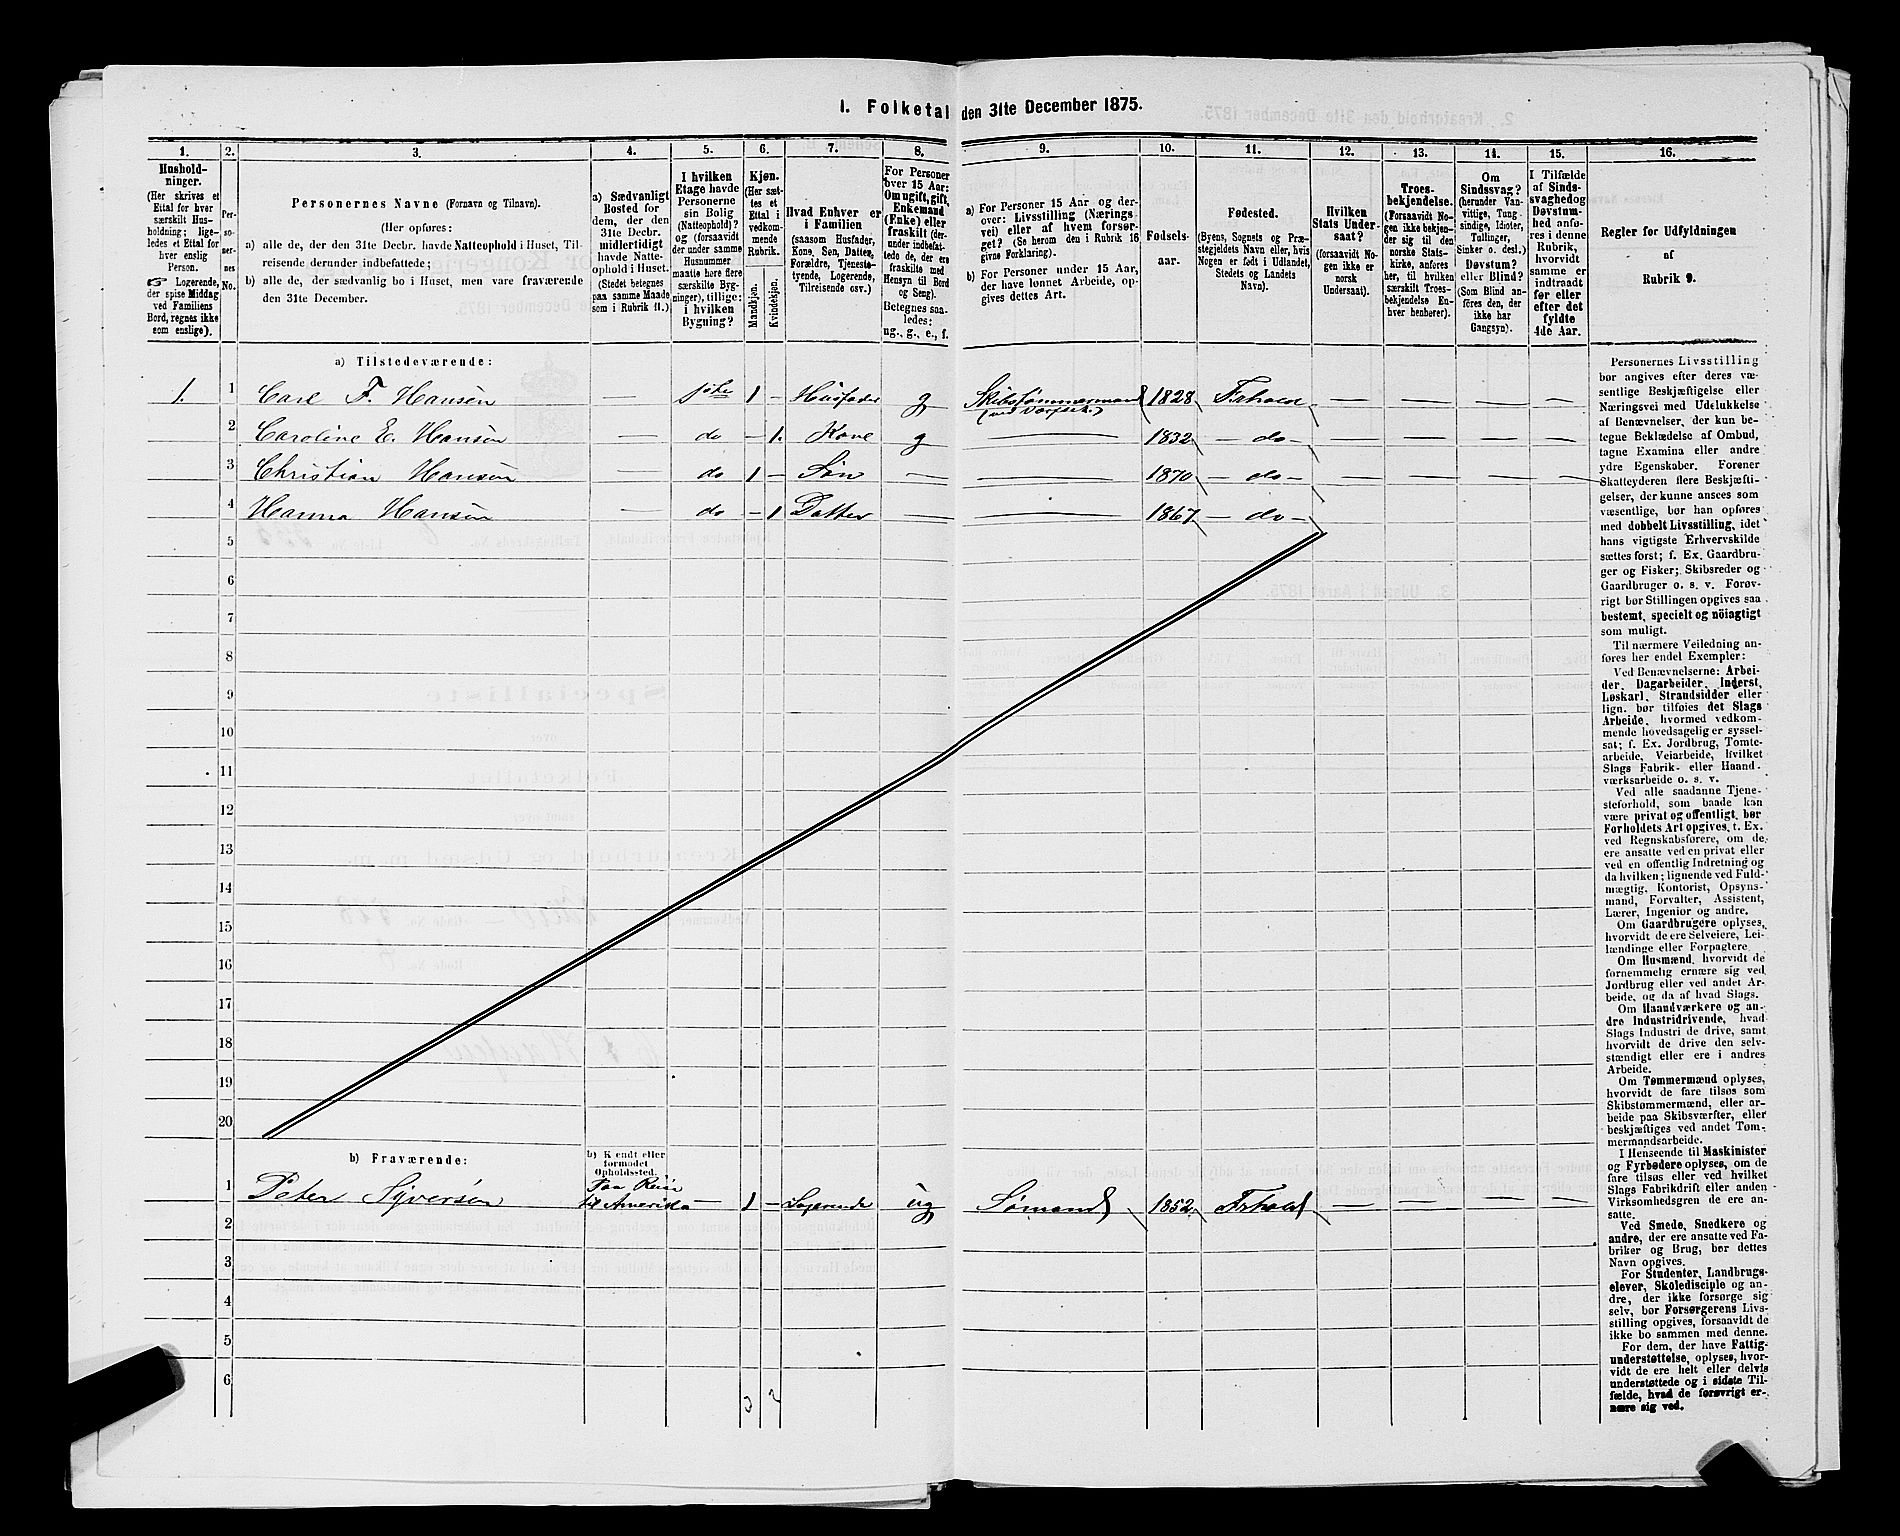 I. Folketal den 31te December 1875.
1. 2. 3. 4. 5. 6. 7. 8. 9. 10. 11. 12. 13. 14. 15. 16.
Husholdninger.
(Her skrives et
Ettal for hver
særskilt Hus-
holdning; lige-
ledes et Ettal for
hver enslig
Person.
☞ Logerende,
der spise Middag
ved Familiens
Bord, regnes ikke
som enslige).
Per-
so-
ner-
nes
No.
Personernes Navne (Fornavn og Tilnavn).
(Her opføres:
a) alle de, der den 31te Decbr. havde Natteophold i Huset, Til-
reisende derunder indbefattede;
b) alle de, der sædvanlig bo i Huset, men vare fraværende
den 31te December.
a) Sædvanligt
Bosted for
dem, der den
31te Decbr.
midlertidigt
havde Natte-
ophold i Huset.
(Stedet betegnes
paa samme Maade
som i Rubrik 11.)
I hvilken
Etage havde
Personerne
sin Bolig
(Natteophold)?
og (forsaavidt
der under samme
Husnummer
maatte høre flere
særskilte Byg-
ninger), tillige:
i hvilken
Bygning?
Kjøn.
(Her sæt-
tes et
Ettal i
vedkom-
mende
Rubrik.
Mandkjøn.
Kvindekjøn.
Hvad Enhver er
i Familien
(saasom Husfader,
Kone, Søn, Datter,
Forældre, Tjeneste-
tyende, Logerende,
Tilreisende osv.)
For Personer
over 15 Aar:
Om ugift, gift,
Enkemand
(Enke) eller
fraskilt (der-
under indbefat-
tede de, der ere
fraskilte med
Hensyn til Bord
og Seng).
Betegnes saa-
ledes:
ug., g., e., f.
a) For Personer 15 Aar og der-
over: Livsstilling (Nærings-
vei) eller af hvem forsør-
get? (Se herom den i Rubrik 16
givne Forklaring).
b) For Personer under 15 Aar,
der have lønnet Arbeide, op-
gives dettes Art.
Fødsels-
aar.
Fødested.
(Byens, Sognets og Præ-
stegjeldets Navn eller, hvis
Nogen er født i Udlandet,
Stedets og Landets
Navn).
Hvilken
Stats Under-
saat?
(forsaavidt No-
gen ikke er
norsk
Undersaat).
Troes-
bekjendelse.
(Forsaavidt No-
gen ikke bekjen-
der sig til den
norske Stats-
kirke, anføres
her, til hvilken
særskilt Troes-
bekjendelse En-
hver henhører).
Om
Sindssvag?
(herunder Van-
vittige, Tung-
sindige, Idioter,
Tullinger,
Sinker o. desl.)
Døvstum?
eller Blind?
(Som Blind an-
føres den, der
ikke har
Gangsyn).
I Tilfælde
af Sinds-
svaghed og
Døvstum-
hed anfø-
res i denne
Rubrik,
hvorvidt
samme er
indtraadt
før eller
efter det
fyldte
4de Aar.
Regler for Udfyldningen
af
Rubrik 9.
a) Tilstedeværende:
1. 1 Carl F. Hansen — 1ste 1 — Husfader g Skibstømmermand (ved Dorfsek.) 1828 Frhald — — — —
2 Caroline E. Hansen — do — 1. Kone g — 1832 — do — — — — —
3 Christian Hansen — do 1 — Søn — — 1870 — do — — — — —
4 Hanna Hansen — do — 1 Datter — — 1867 — do —
5
6
7
8
9
10
11
12
13
14
15
16
17
18
19
20
b) Fraværende:
b) Kjendt eller
formodet
Opholdssted.
1 Peter Syversen Paa Reise til Amerika — 1 — Logerende ug Sømand 1852 Frhald — — — —
2
3
4
5
6
3 2
Personernes Livsstilling
bør angives efter deres væ-
sentlige Beskjæftigelse eller
Næringsvei med Udelukkelse
af Benævnelser, der kun be-
tegne Beklædelse af Ombud,
tagne Examina eller andre
ydre Egenskaber. Forener
Skatteyderen flere Beskjæfti-
gelser, der kunne ansees som
væsentlige, bør han opføres
med dobbelt Livsstilling, idet
hans vigtigste Erhvervskilde
sættes først; f. Ex. Gaardbru-
ger og Fisker; Skibsreder og
Gaardbruger o. s. v. Forøv-
rigt bør Stillingen opgives saa
bestemt, specielt og nöiagtigt
som muligt.
Til nærmere Veiledning an-
føres her endel Exempler:
Ved Benævnelserne: Arbei-
der, Dagarbeider, Inderst,
Løskarl, Strandsidder eller
lign. bør tilføies det Slags
Arbeide, hvormed vedkom-
mende hovedsagelig er syssel-
sat; f. Ex. Jordbrug, Tomte-
arbeide, Veiarbeide, hvilket
Slags Fabrik- eller Haand-
værksarbeide o. s. v.
Ved alle saadanne Tjene-
steforhold, som baade kan
være privat og offentligt, bør
Forholdets Art opgives, t. Ex.
ved Regnskabsførere, om de
ere ansatte ved en privat eller
ved en offentlig Indretning og
da hvilken; lignende ved Fuld-
mægtig, Kontorist, Opsyns-
mand, Forvalter, Assistent,
Lærer, Ingeniør og andre.
Om Gaardbrugere oplyses,
hvorvidt de ere Selveiere, Lei-
lændinge eller Forpagtere.
Om Husmænd, hvorvidt de
fornemmelig ernære sig ved
Jordbrug eller ved andet Ar-
beide, og da af hvad Slags.
Om Haandværkere og an-
dre Industridrivende, hvad
Slags Industri de drive, samt
hvorvidt de drive den selv-
stændigt eller ere i andres
Arbeide.
Om Tømmermænd oplyses,
hvorvidt de fare tilsøs som
Skibstømmermænd, eller ar-
beide paa Skibsværfter, eller
beskjæftiges ved andet Tøm-
mermandsarbeide.
I Henseende til Maskinister
og Fyrbødere oplyses, om de
fare tilsøs eller ved hvilket
Slags Fabrikdrift eller anden
Virksomhedsgren de ere an-
satte.
Ved Smede, Snedkere og
andre, der ere ansatte ved Fa-
briker og Brug, bør dettes
Navn opgives.
For Studenter, Landbrugs-
elever, Skoledisciple og an-
dre, der ikke forsørge sig
selv, bør Forsørgerens Livs-
stilling opgives, forsaavidt de
ikke bo sammen med denne.
For dem, der have Fattig-
understøttelse, oplyses, hvor-
vidt de ere helt eller delvis
understøttede og i sidste Til-
fælde, hvad de forøvrigt er-
nære sig ved.